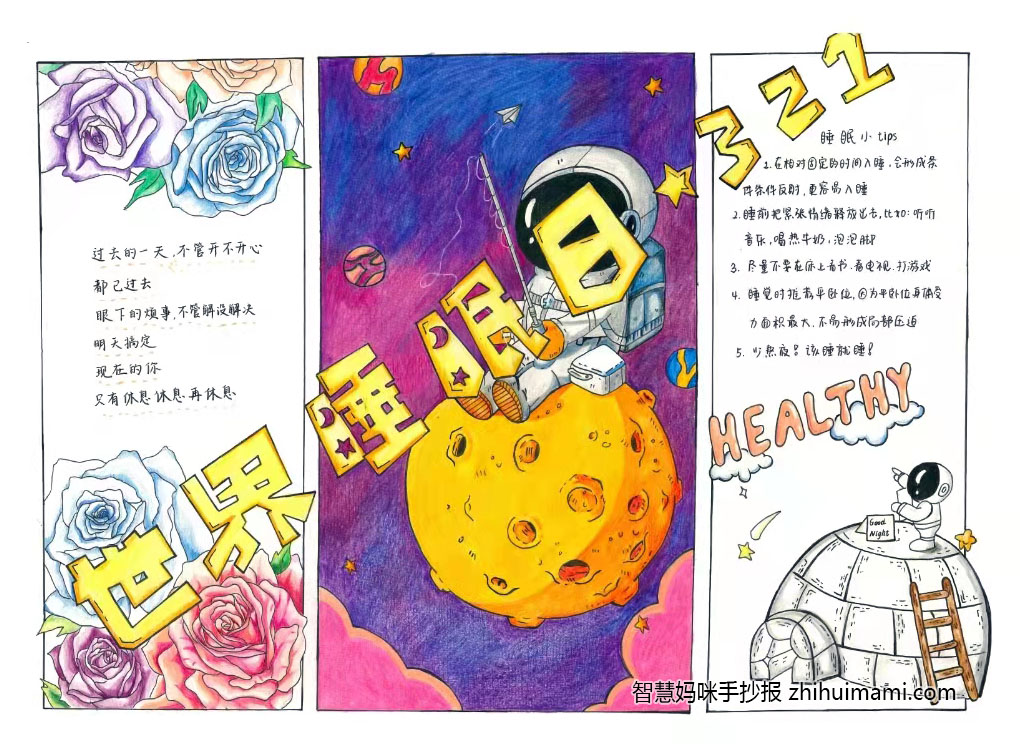 世界睡眠日
321
过去的一天,不管开不开心
都已过去
眼下的烦事,不管解没解决
明天搞定
现在的你
只有休息 休息 再休息
睡眠小tips
1.在相对固定的时间入睡,会形成条
件条件反射,更容易入睡
2.睡前把紧张情绪释放出去,比如:听听
音乐,喝热牛奶,泡泡脚
3. 尽量不要在床上看书.看电视.打游戏
4. 睡觉时推荐平卧位,因为平卧位身体受
力面积最大,不易形成局部压迫
5. 少熬夜!该睡就睡!
HEALTHY
Good
Night
智慧妈咪手抄报 zhihuimami.com